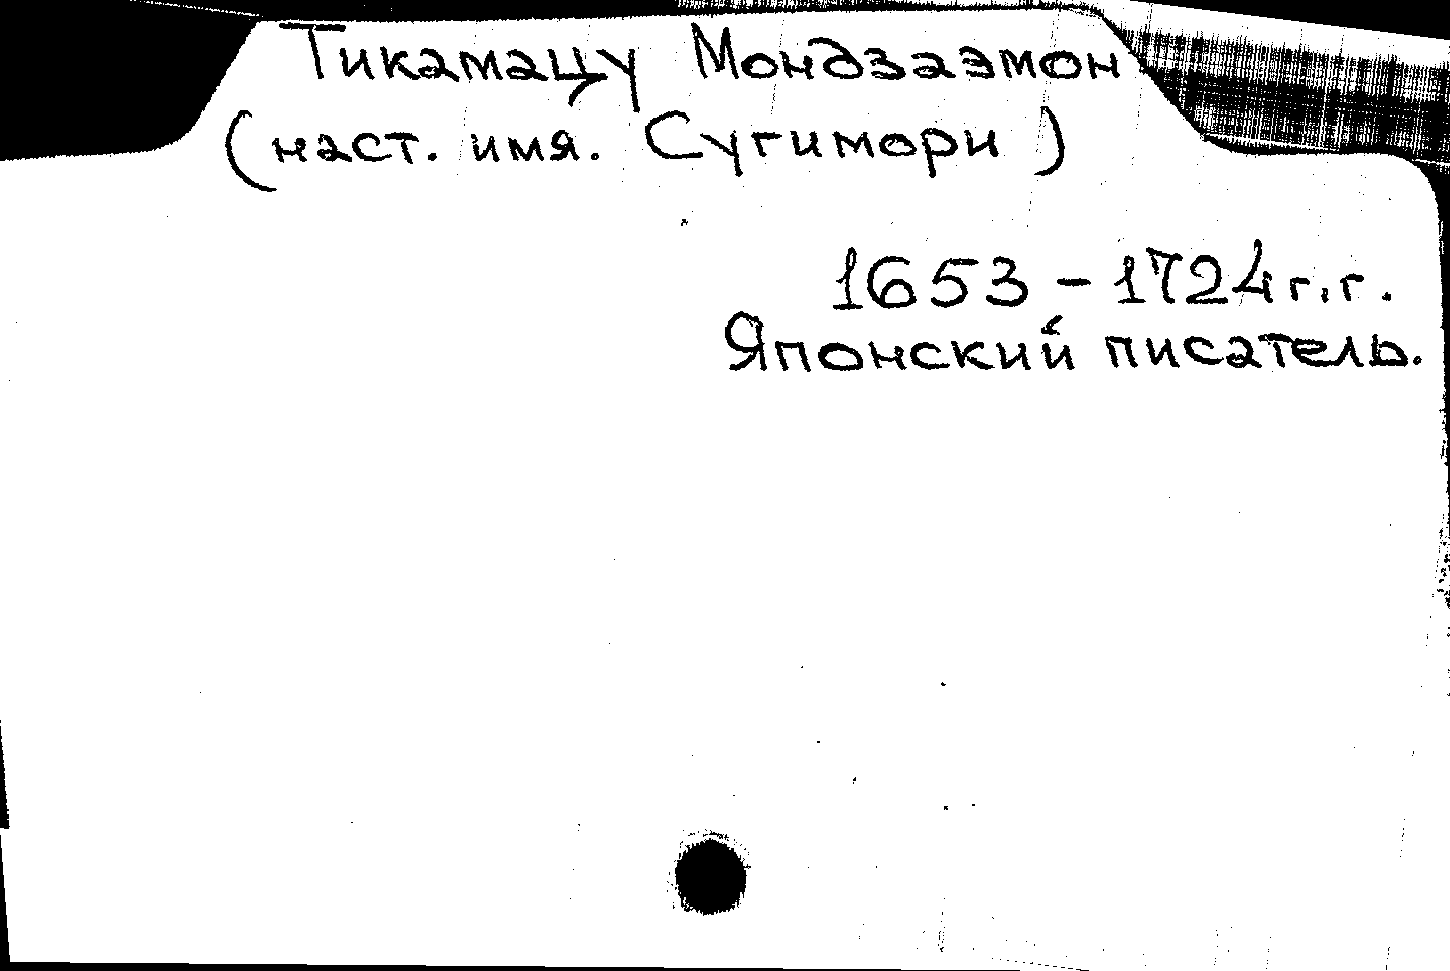 Тикамацу Мондзаэмон
(наст. имя. Сугимори)
1653 - 1724 г.г.
Японский писатель.